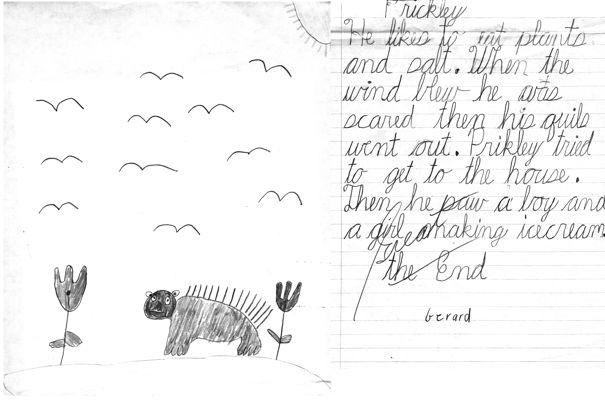 Prickley
He likes to eat plants
and salt. When the
wind blew he was
scared then his quils
went out. Prikley tried
to get to the house.
Then he saw a boy and
a girl making icecream.
the End
Gerard